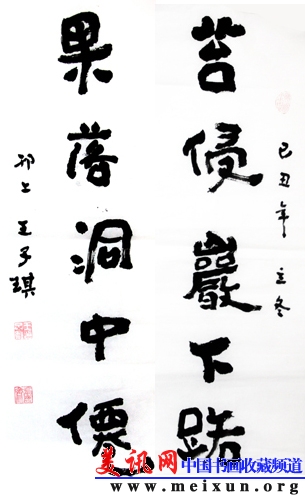 己丑年立冬
苔侵巖下路
果落洞中僊
邗上王子琪
美讯网中国书画收藏频道
www.meixun.org